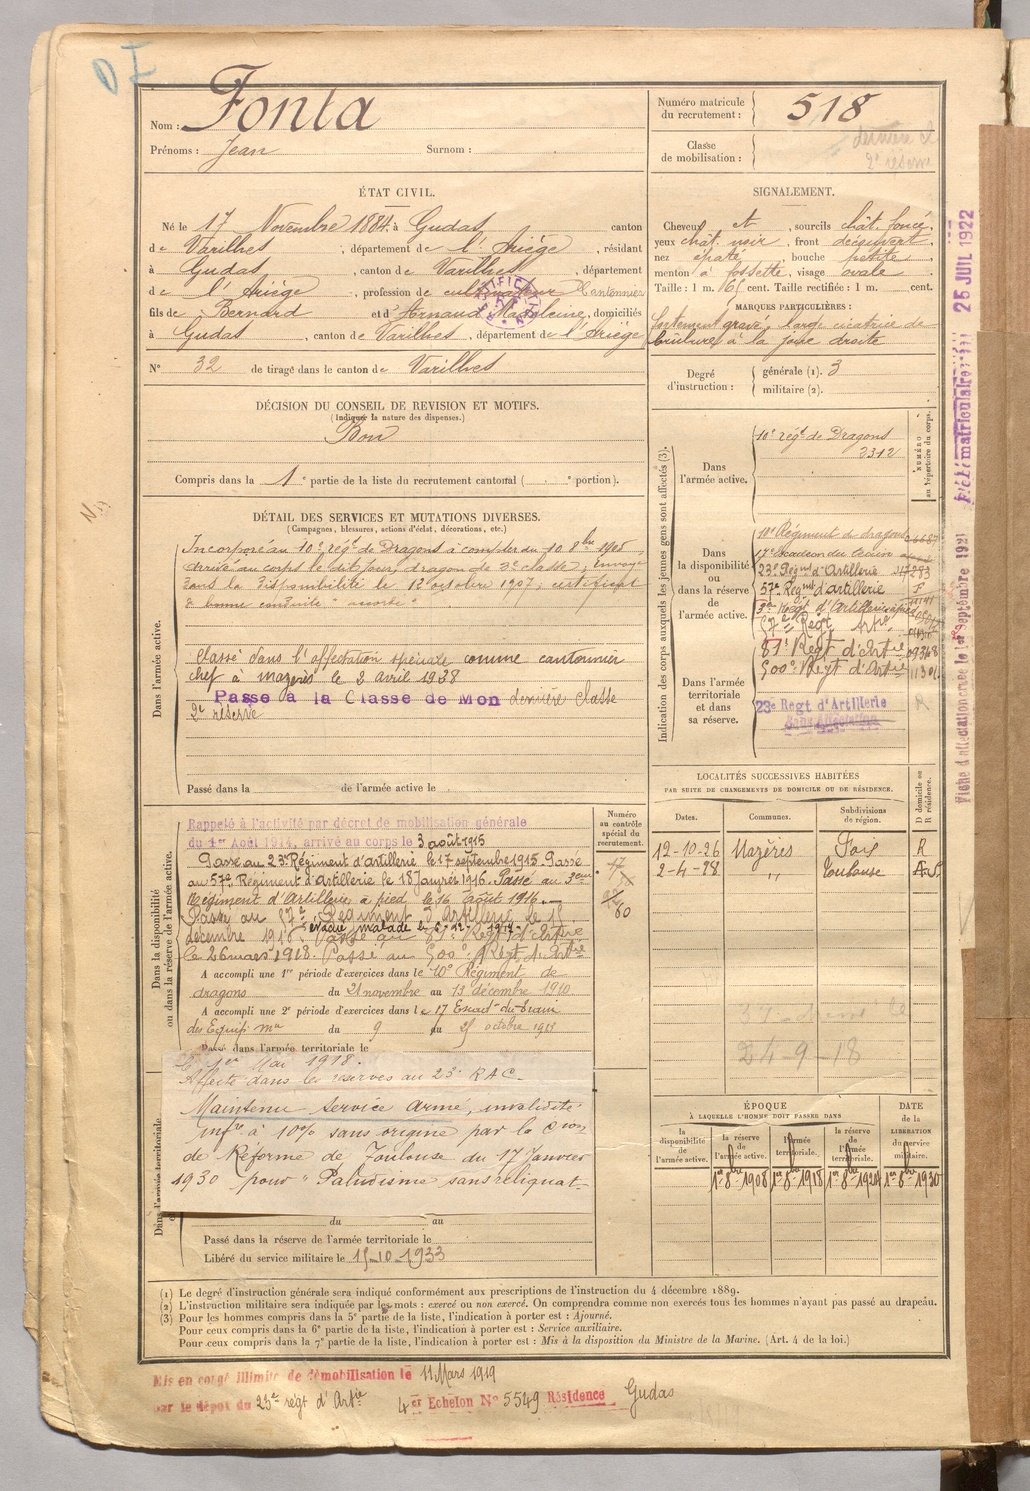 Nom : Fonta
Prénoms : Jean Surnom :
Numéro matricule du recrutement : 518
Classe de mobilisation : dernière Cl
2e réserve
ÉTAT CIVIL.
Né le 17 Novembre 1884 à Gudas canton
de Varilhes, département de l'Ariège, résidant
à Gudas, canton de Varilhes, département
de l'Ariège, profession de cultivateur Cantonnier
fils de Bernard et d'Arnaud Madeleine, domiciliés
à Gudas, canton de Varilhes, département de l'Ariège
N° 32 de tirage dans le canton de Varilhes
SIGNALEMENT.
Cheveux et, sourcils chât. foncé,
yeux chât. noir, front découvert,
nez épaté, bouche petite,
menton à fossette, visage ovale
Taille : 1 m. 65 cent. Taille rectifiée : 1 m. cent.
MARQUES PARTICULIÈRES :
fortement gravé, large cicatrice de
brûlure à la joue droite
Degré d'instruction : générale (1). 3
militaire (2).
DÉCISION DU CONSEIL DE REVISION ET MOTIFS.
(Indiquer la nature des dispenses.)
Bon
Compris dans la 1e partie de la liste du recrutement cantonal ( e portion).
DÉTAIL DES SERVICES ET MUTATIONS DIVERSES.
(Campagnes, blessures, actions d'éclat, décorations, etc.)
Dans l'armée active.
Incorporé au 10e régt de Dragons à compter du 10 8bre 1905
arrivé au corps le dit jour, dragon de 2e classe, envoyé
dans la disponibilité le 12 octobre 1907, certificat
de bonne conduite "accordé"
Classé dans l'affectation spéciale comme cantonnier
chef à Mazères le 2 avril 1928
Passé à la Classe de Mon dernière classe
2e réserve
Passé dans la de l'armée active le
Indication des corps auxquels les jeunes gens sont affectés (3).
NUMÉRO au répertoire du corps.
Dans l'armée active.
10e régt de Dragons
3312
Dans la disponibilité ou dans la réserve de l'armée active.
10e Régiment de dragons
17e Escadron du train
23e Régmt d'Artillerie
57e Régmt d'artillerie
3e Régt d'Artillerie à pied
87e Regt Artie
81e Régt d'Artie
500e Régt d'Artie
Dans l'armée territoriale et dans sa réserve.
23e Regt d'Artillerie
Sans Affectation
R
LOCALITÉS SUCCESSIVES HABITÉES
PAR SUITE DE CHANGEMENTS DE DOMICILE OU DE RÉSIDENCE.
Dates. Communes. Subdivisions de région. D domicile ou R résidence.
12-10-26 Mazères Foix R
2-4-28 " Toulouse
24-9-18
Dans la disponibilité ou dans la réserve de l'armée active.
Numéro au contrôle spécial du recrutement.
Rappelé à l'activité par décret de mobilisation générale
du 1er Août 1914, arrivé au corps le 3 août 1915
Passé au 23e Régiment d'artillerie le 17 septembre 1915. Passé
au 57e Régiment d'Artillerie le 18 Janvier 1916. Passé au 3eme
Régiment d'Artillerie à pied le 16 Août 1916.
Passé au 87e Régiment d'Artillerie le 15
évacué malade le 6-12-1917
décembre 1918. Passé au 81e Régt d'Artie
le 26 mars 1918. Passé au 500e Régt d'Artie
A accompli une 1re période d'exercices dans le 10e Régiment de
dragons du 21 novembre au 13 décembre 1910
A accompli une 2e période d'exercices dans le 17 Escad. du train
des Equip. mres du 9 au 25 octobre 1913
Passé dans l'armée territoriale le
le 1er Mai 1918.
Affecté dans les réserves au 23e RAC
Maintenu Service Armé, invalidité
infre à 10% sans origine par la Cion
de Réforme de Toulouse du 17 Janvier
1930 pour "Paludisme sans reliquat
du au
Passé dans la réserve de l'armée territoriale le
Libéré du service militaire le 15-10-1933
ÉPOQUE
À LAQUELLE L'HOMME DOIT PASSER DANS
DATE de la LIBÉRATION du service militaire.
la disponibilité de l'armée active. la réserve de l'armée active. l'armée territoriale. la réserve de l'armée territoriale.
1er 8bre 1908 1er 8bre 1918 1er 8bre 1924 1er 8bre 1930
(1) Le degré d'instruction générale sera indiqué conformément aux prescriptions de l'instruction du 4 décembre 1889.
(2) L'instruction militaire sera indiquée par les mots : exercé ou non exercé. On comprendra comme non exercés tous les hommes n'ayant pas passé au drapeau.
(3) Pour les hommes compris dans la 5e partie de la liste, l'indication à porter est : Ajourné.
Pour ceux compris dans la 6e partie de la liste, l'indication à porter est : Service auxiliaire.
Pour ceux compris dans la 7e partie de la liste, l'indication à porter est : Mis à la disposition du Ministre de la Marine. (Art. 4 de la loi.)
Mis en congé illimité de démobilisation le 11 Mars 1919
par le dépôt du 23e régt d'Artie 4er Echelon N° 5549 Résidence Gudas
Fiche d'affectation créée le 1er Septembre 1921
25 JUIL 1922